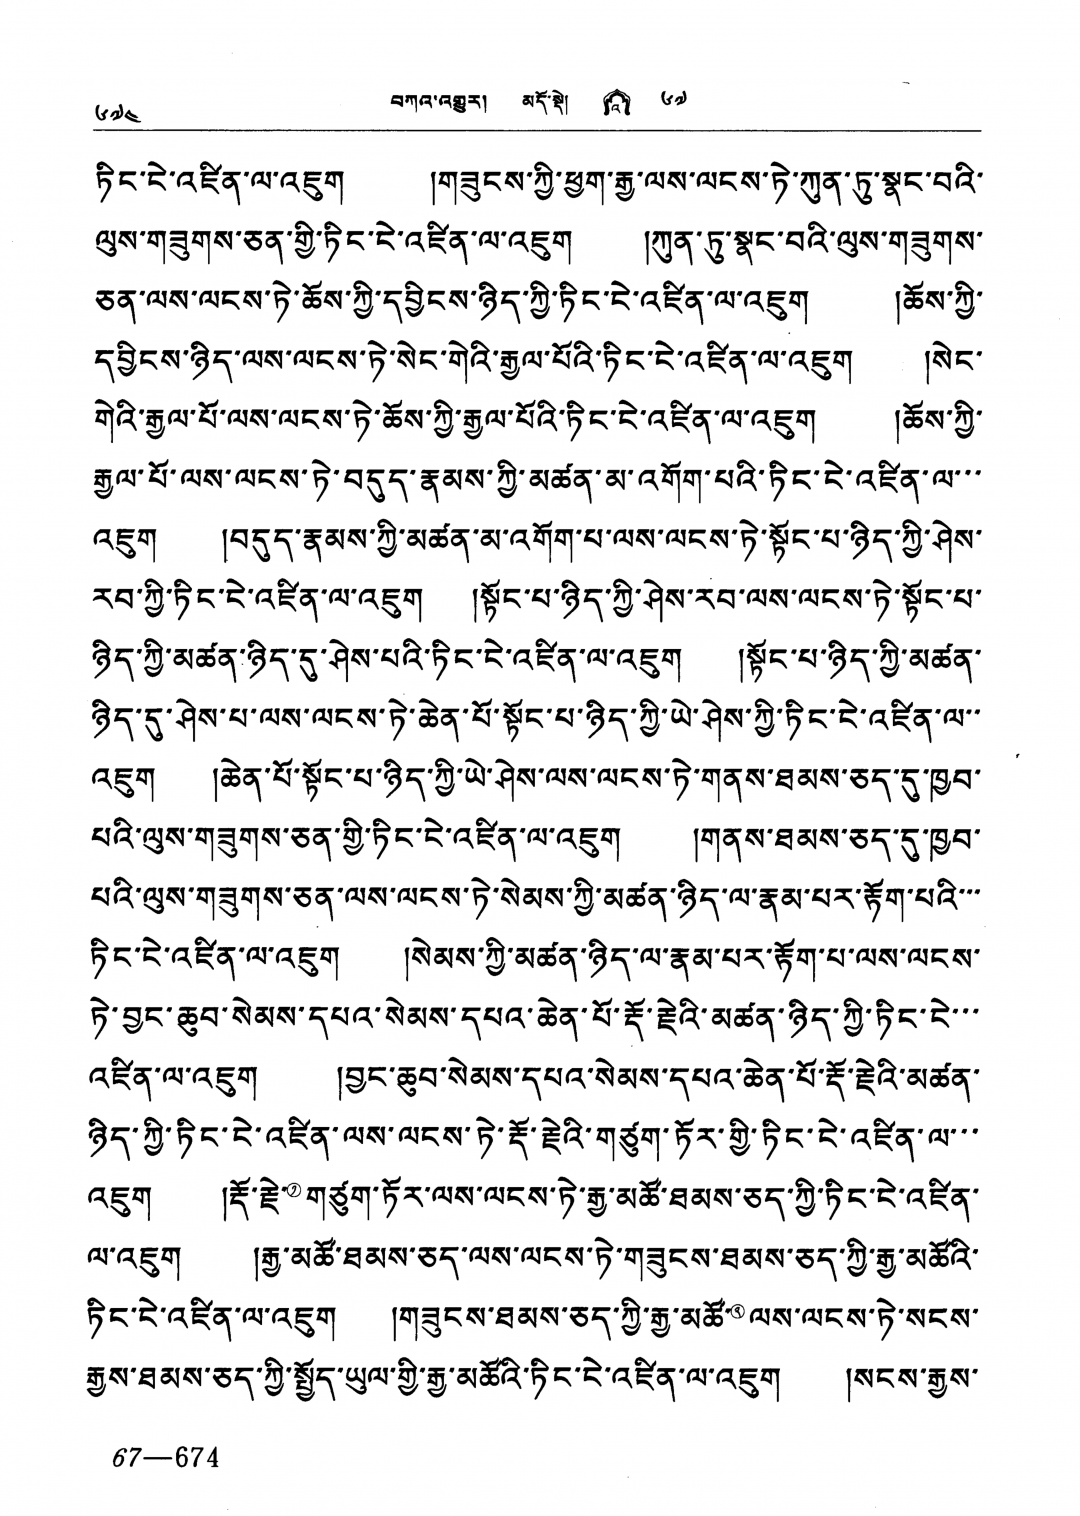 ༦༧༤ བཀའ་འགྱུར། མདོ་སྡེ། ༼འ༽ ༦༧
ཏིང་ངེ་འཛིན་ལ་འཇུག །གཟུངས་ཀྱི་ཕྱག་རྒྱ་ལས་ལངས་ཏེ་ཀུན་ཏུ་སྣང་བའི་
ལུས་གཟུགས་ཅན་གྱི་ཏིང་ངེ་འཛིན་ལ་འཇུག །ཀུན་ཏུ་སྣང་བའི་ལུས་གཟུགས་
ཅན་ལས་ལངས་ཏེ་ཆོས་ཀྱི་དབྱིངས་ཉིད་ཀྱི་ཏིང་ངེ་འཛིན་ལ་འཇུག །ཆོས་ཀྱི་
དབྱིངས་ཉིད་ལས་ལངས་ཏེ་སེང་གེའི་རྒྱལ་པོའི་ཏིང་ངེ་འཛིན་ལ་འཇུག །སེང་
གེའི་རྒྱལ་པོ་ལས་ལངས་ཏེ་ཆོས་ཀྱི་རྒྱལ་པོའི་ཏིང་ངེ་འཛིན་ལ་འཇུག །ཆོས་ཀྱི་
རྒྱལ་པོ་ལས་ལངས་ཏེ་བདུད་རྣམས་ཀྱི་མཚན་མ་འགོག་པའི་ཏིང་ངེ་འཛིན་ལ་་་
འཇུག །བདུད་རྣམས་ཀྱི་མཚན་མ་འགོག་པ་ལས་ལངས་ཏེ་སྟོང་པ་ཉིད་ཀྱི་ཤེས་
རབ་ཀྱི་ཏིང་ངེ་འཛིན་ལ་འཇུག །སྟོང་པ་ཉིད་ཀྱི་ཤེས་རབ་ལས་ལངས་ཏེ་སྟོང་པ་
ཉིད་ཀྱི་མཚན་ཉིད་དུ་ཤེས་པའི་ཏིང་ངེ་འཛིན་ལ་འཇུག །སྟོང་པ་ཉིད་ཀྱི་མཚན་
ཉིད་དུ་ཤེས་པ་ལས་ལངས་ཏེ་ཆེན་པོ་སྟོང་པ་ཉིད་ཀྱི་ཡེ་ཤེས་ཀྱི་ཏིང་ངེ་འཛིན་ལ་་
འཇུག །ཆེན་པོ་སྟོང་པ་ཉིད་ཀྱི་ཡེ་ཤེས་ལས་ལངས་ཏེ་གནས་ཐམས་ཅད་དུ་ཁྱབ་
པའི་ལུས་གཟུགས་ཅན་གྱི་ཏིང་ངེ་འཛིན་ལ་འཇུག །གནས་ཐམས་ཅད་དུ་ཁྱབ་
པའི་ལུས་གཟུགས་ཅན་ལས་ལངས་ཏེ་སེམས་ཀྱི་མཚན་ཉིད་ལ་རྣམ་པར་རྟོག་པའི་་་
ཏིང་ངེ་འཛིན་ལ་འཇུག །སེམས་ཀྱི་མཚན་ཉིད་ལ་རྣམ་པར་རྟོག་པ་ལས་ལངས་
ཏེ་བྱང་ཆུབ་སེམས་དཔའ་སེམས་དཔའ་ཆེན་པོ་རྡོ་རྗེའི་མཚན་ཉིད་ཀྱི་ཏིང་ངེ་་་
འཛིན་ལ་འཇུག །བྱང་ཆུབ་སེམས་དཔའ་སེམས་དཔའ་ཆེན་པོ་རྡོ་རྗེའི་མཚན་
ཉིད་ཀྱི་ཏིང་ངེ་འཛིན་ལས་ལངས་ཏེ་རྡོ་རྗེའི་གཙུག་ཏོར་གྱི་ཏིང་ངེ་འཛིན་ལ་་་
འཇུག །རྡོ་རྗེ་①གཙུག་ཏོར་ལས་ལངས་ཏེ་རྒྱ་མཚོ་ཐམས་ཅད་ཀྱི་ཏིང་ངེ་འཛིན་
ལ་འཇུག །རྒྱ་མཚོ་ཐམས་ཅད་ལས་ལངས་ཏེ་གཟུངས་ཐམས་ཅད་ཀྱི་རྒྱ་མཚོའི་
ཏིང་ངེ་འཛིན་ལ་འཇུག །གཟུངས་ཐམས་ཅད་ཀྱི་རྒྱ་མཚོ་②ལས་ལངས་ཏེ་སངས་
རྒྱས་ཐམས་ཅད་ཀྱི་སྤྱོད་ཡུལ་གྱི་རྒྱ་མཚོའི་ཏིང་ངེ་འཛིན་ལ་འཇུག །སངས་རྒྱས་
67—674